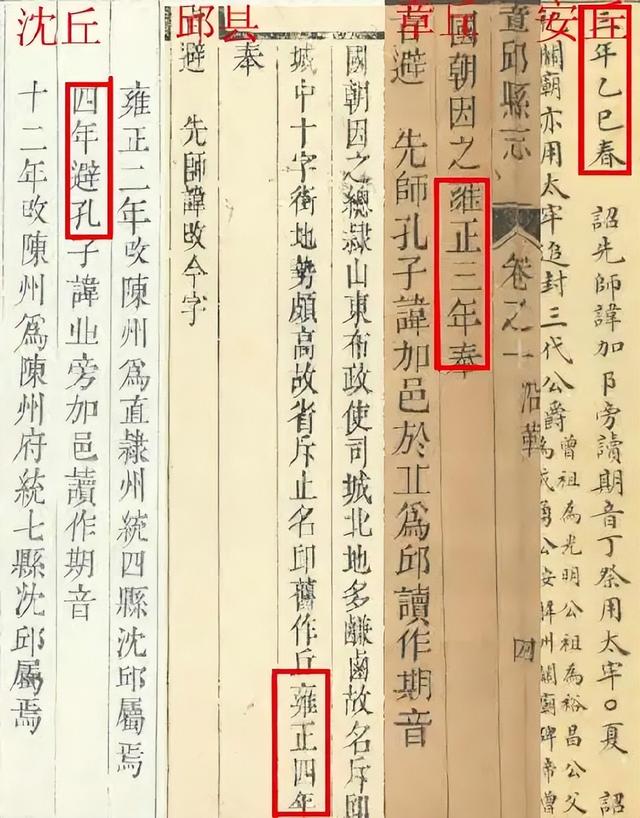 安丘
三年乙巳春 詔先師諱加阝旁讀期音丁祭用太牢○夏 詔
關廟亦用太牢追封三代公爵曾祖為光明公祖為裕昌公父
公安解州關廟碑帝曾
章丘
章邱縣志 卷之一 沿革 四
國朝因之雍正三年奉
旨避 先師孔子諱加邑於丘為邱讀作期音
邱县
國朝因之總隸山東布政使司城北地多鹻鹵故名斥邱
城中十字街地勢頗高故省斥止名邱舊作丘雍正四年
奉
旨避 先師諱改今字
沈丘
雍正二年改陳州爲直隸州統四縣沈邱屬焉
四年避孔子諱丘旁加邑讀作期音
十二年改陳州爲陳州府統七縣沈邱屬焉